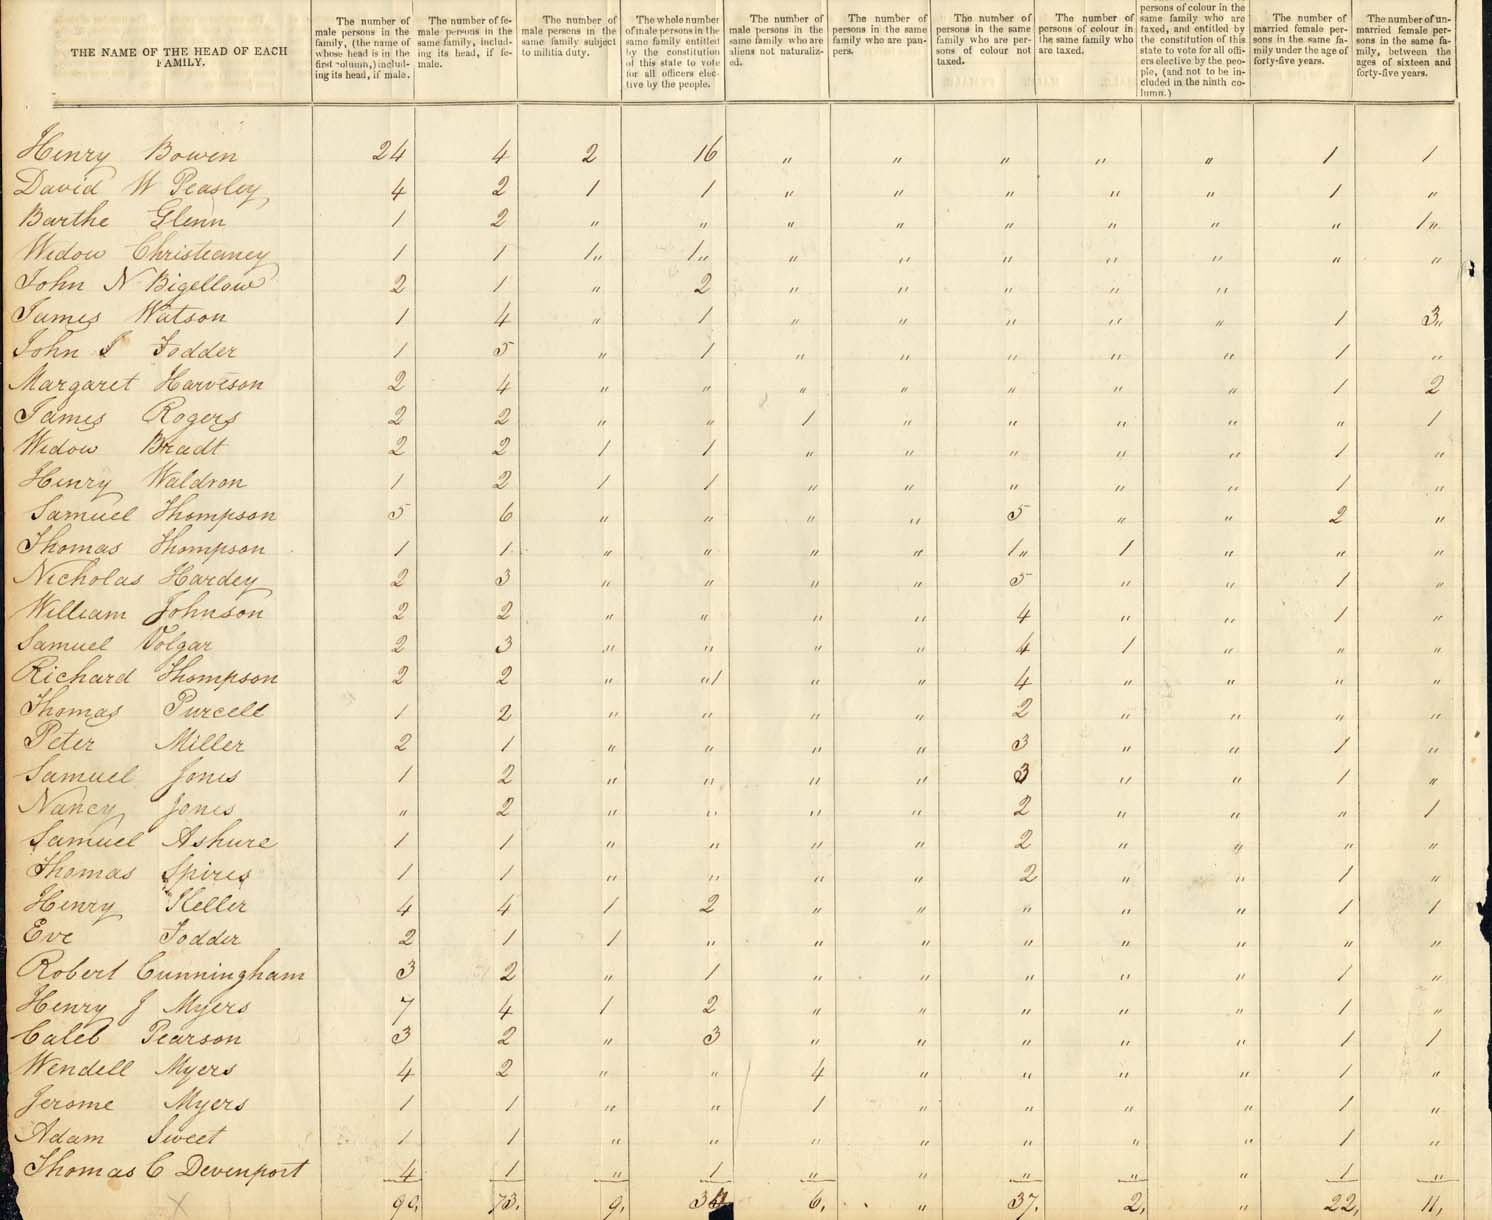 THE NAME OF THE HEAD OF EACH FAMILY. | The number of male persons in the family, (the name of whose head is in the first column,) including its head, if male. | The number of female persons in the same family, including its head, if female. | The number of male persons in the same family subject to militia duty. | The whole number of male persons in the same family entitled by the constitution of this state to vote for all officers elective by the people. | The number of male persons in the same family who are aliens not naturalized. | The number of persons in the same family who are paupers. | The number of persons in the same family who are persons of colour not taxed. | The number of persons of colour in the same family who are taxed. | persons of colour in the same family who are taxed, and entitled by the constitution of this state to vote for all officers elective by the people, (and not to be included in the ninth column.) | The number of married female persons in the same family under the age of forty-five years. | The number of unmarried female persons in the same family, between the ages of sixteen and forty-five years.
Henry Bowen 24 4 2 16 " " " " " 1 1
David W Peasley 4 2 1 1 " " " " " 1 "
Barthe Glenn 1 2 " " " " " " " " 1"
Widow Christieaney 1 1 1" 1" " " " " " " "
John N Bigellow 2 1 " 2 " " " " "
James Watson 1 4 " 1 " " " " " 1 3"
John J Fodder 1 5 " 1 " " " " " 1 "
Margaret Harveson 2 4 " " " " " " " 1 2
James Rogers 2 2 " " 1 " " " " " 1
Widow Bradt 2 2 1 1 " " " " " 1 "
Henry Waldron 1 2 1 1 " " " " " 1 "
Samuel Thompson 5 6 " " " " 5 " " 2 "
Thomas Thompson 1 1 " " " " 1" 1 " " "
Nicholas Hardey 2 3 " " " " 5 " " 1 "
William Johnson 2 2 " " " " 4 " " 1 "
Samuel Volgar 2 3 " " " " 4 1 " " "
Richard Thompson 2 2 " "1 " " 4 " " " "
Thomas Purcell 1 2 " " " " 2 " " " "
Peter Miller 2 1 " " " " 3 " " 1 "
Samuel Jones 1 2 " " " " 3 " " 1 "
Nancy Jones " 2 " " " " 2 " " " 1
Samuel Ashure 1 1 " " " " 2 " " " "
Thomas Spires 1 1 " " " " 2 " " 1 "
Henry Keller 4 4 1 2 " " " " " 1 1
Eve Fodder 2 1 1 " " " " " " " "
Robert Cunningham 3 2 " 1 " " " " " 1 "
Henry J Myers 7 4 1 2 " " " " " 1 "
Caleb Pearson 3 2 " 3 " " " " " 1 1
Wendell Myers 4 2 " " 4 " " " " 1 "
Jerome Myers 1 1 " " 1 " " " " 1 "
Adam Sweet 1 1 " " " " " " " 1 "
Thomas C Devenport 4 1 " 1 " " " " " 1 "
90, 73. 9, 6, " 37. 2, " 22, 11,